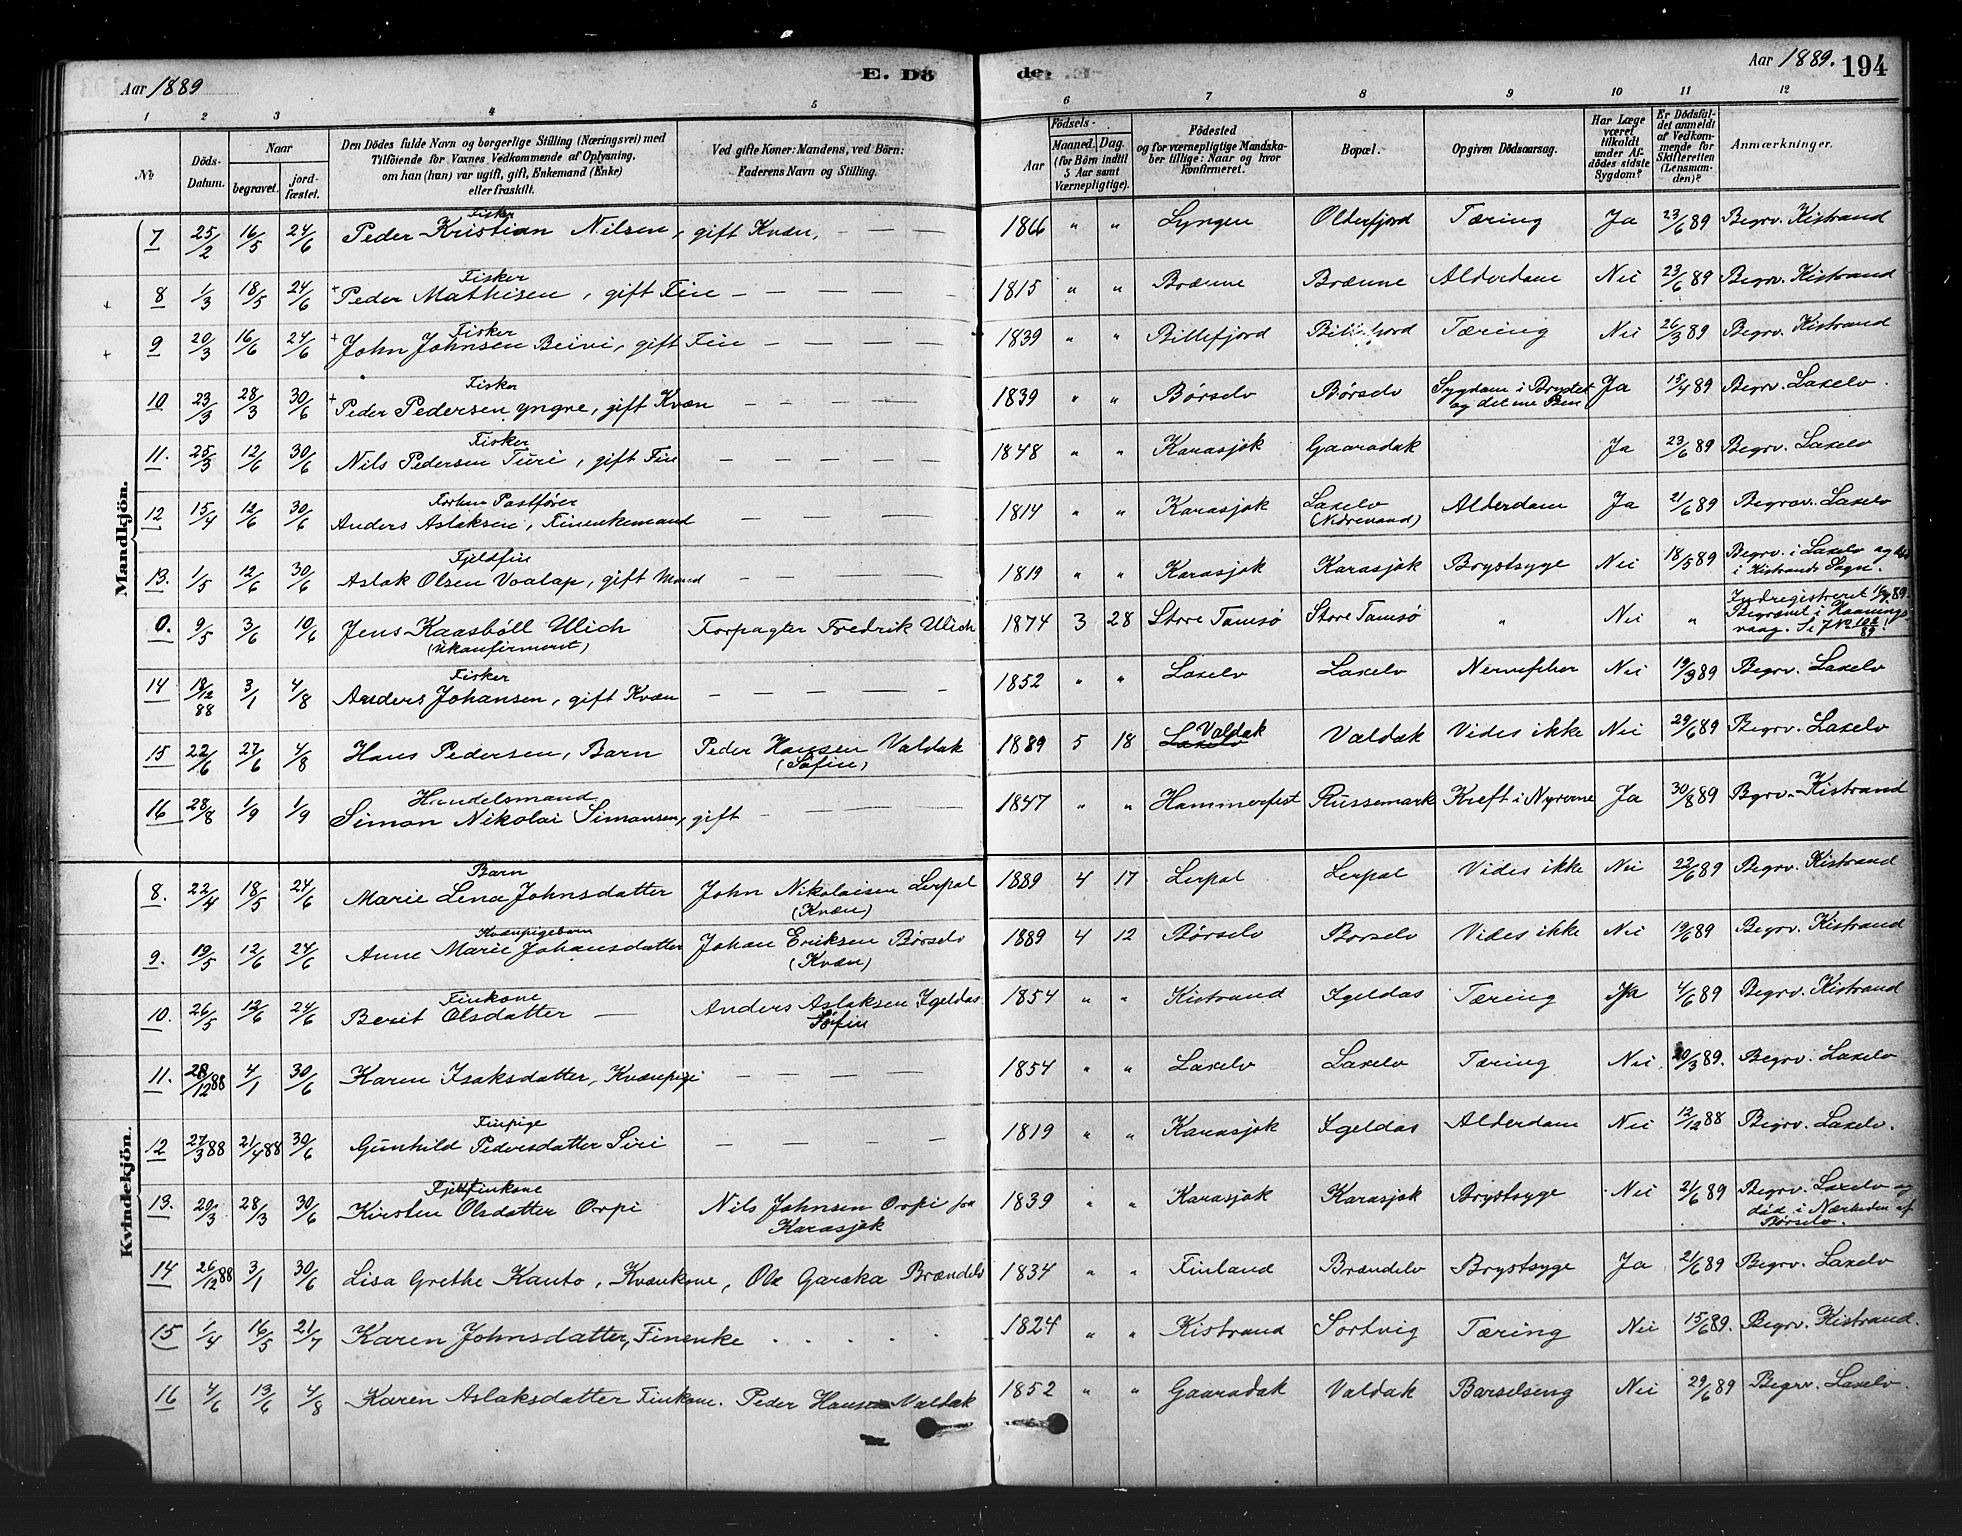 Aar 1889
E. Dö
de.
Aar 1889. 194
1 2 3 4 5 6 7 8 9 10 11 12
No
Döds-Datum.
Naar
begravet.
jord-fæstet.
Den Dödes fulde Navn og borgerlige Stilling (Næringsvei) med
Tilföiende for Voxnes Vedkommende af Oplysning,
om han (hun) var ugift, gift, Enkemand (Enke)
eller fraskilt.
Ved gifte Koner: Mandens, ved Börn:
Faderens Navn og Stilling.
Födsels-
Aar
Maaned. Dag.
(for Börn indtil
5 Aar samt
Værnepligtige).
Födested
og for værnepligtige Mandska-
ber tillige: Naar og hvor
konfirmeret.
Bopæl.
Opgiven Dödsaarsag.
Har Læge
været
tilkaldt
under Af-
dödes sidste
Sygdom?
Er Dödsfal-
det anmeldt
af Vedkom-
mende for
Skifteretten
(Lensman-
den)?
Anmærkninger.
Mandkjön.
7 25/2 16/5 24/6 Fisker Peder Kristian Nilsen, gift Kvæn, — — — 1866 " " Lyngen Olderfjord Tæring Ja 23/6 89 Begrv. Kistrand
8 1/3 18/5 24/6 Fisker + Peder Mathisen, gift Fin — — — — 1815 " " Brænne Brænne Alderdom Nei 23/6 89 Begrv. Kistrand
9 20/3 16/6 24/6 Fisker + John Johnsen Beivi, gift Fin — — — — 1839 " " Billefjord Billefjord Tæring Nei 26/3 89 Begrv. Kistrand
10 23/3 28/3 30/6 Fisker + Peder Pedersen yngre, gift Kvæn — — — — 1839 " " Börselv Börselv Sygdom i Brystet og det ene Ben Ja 15/4 89 Begrv. Laxelv.
11. 25/3 12/6 30/6 Fisker Nils Pedersen Turi, gift Fin — — — — 1848 " " Karasjok Gaaradak Ja 23/6 89 Begrv. Laxelv
12 15/4 12/6 30/6 Forhen Postfører Anders Aslaksen, Finenkemand — — — — 1814 " " Karasjok Laxelv Alderdom Ja 21/6 89 Begrav. Laxelv
13. 1/5 12/6 30/6 Fjeldfin Aslak Olsen Voalap, gift Mand — — — — 1819 " " Karasjok Karasjok Brystsyge Nei 18/5 89 Begrv. i Laxelv og
i Kistrands Sogn.
0. 9/5 3/6 10/6 Jens Kaasböll Ulich (ukonfirmeret) Forpagter Fredrik Ulich 1874 3 28 Store Tamsö Store Tamsö " Nei " Indregistreret
Begravet i Honnings-
vaag.
14 18/12 88 3/1 4/8 Fisker Anders Johansen, gift Kvæn — — — — 1852 " " Laxelv Laxelv Nervefeber Nei 19/3 89 Begrv. Laxelv
15 22/6 27/6 4/8 Hans Pedersen, Barn Peder Hansen Valdak (Söfin) 1889 5 18 Laxelv Valdak Valdak Vides ikke Nei 29/6 89 Begrv. Laxelv
16 28/8 1/9 1/9 Handelsmand Simon Nikolai Simonsen, gift — — — — 1847 " " Hammerfest Russemark Kreft i Nyrerne Ja 30/8 89 Bgrv. Kistrand
Kvindekjön.
8. 22/4 18/5 24/6 Barn Marie Lena Johnsdatter John Nikolaisen Lerpol (Kvæn) 1889 4 17 Lerpol Lerpol Vides ikke Nei 22/6 89 Begrv. Kistrand
9. 19/5 12/6 24/6 Kvænpigebarn Anne Marie Johansdatter Johan Eriksen Börselv (Kvæn) 1889 4 12 Börselv Borselv Vides ikke Nei 19/6 89 Begrv. Kistrand
10. 26/5 12/6 24/6 Finkone Berit Olsdatter — Anders Aslaksen Igeldas Söfin 1854 " " Kistrand Igeldas Tæring Ja 4/6 89 Begrv. Kistrand
11. 28/12 88 4/1 30/6 Karen Isaksdatter, Kvænpige — — — — 1854 " " Laxelv Laxelv Tæring Nei. 20/3 89. Begrv. Laxelv
12 27/3 88 21/4 88 30/6 Finpige Gunhild Pedersdatter Siri — — — — 1819 " " Karasjok Igeldas Alderdom Nei 12/12 88 Begrv. Laxelv.
13. 20/3 28/3 30/6 Fjeldfinkone Kirsten Olsdatter Orpi Nils Johnsen Orpi fra Karasjok 1839 " " Karasjok Karasjok Brystsyge Nei 21/6 89 Begrv. Laxelv og
död i Nærheden af
Börselv.
14 26/12 88 3/1 30/6 Lisa Grethe Kanto, Kvænkone, Ole Garaka Brændelv 1834 " " Finland Brændelv Brystsyge Ja 21/6 89 Begrv. Laxelv
15 1/4 16/5 21/7 Karen Johnsdatter, Finenke . . . . . 1824 " " Kistrand Sortvig Tæring Nei 15/6 89. Begrv. Kistrand.
16 4/6 13/6 4/8 Karen Aslaksdatter Finkone. Peder Hansen Valdak 1852 " " Gaaradak Valdak Barselseng Nei 29/6 89 Begrv. Laxelv